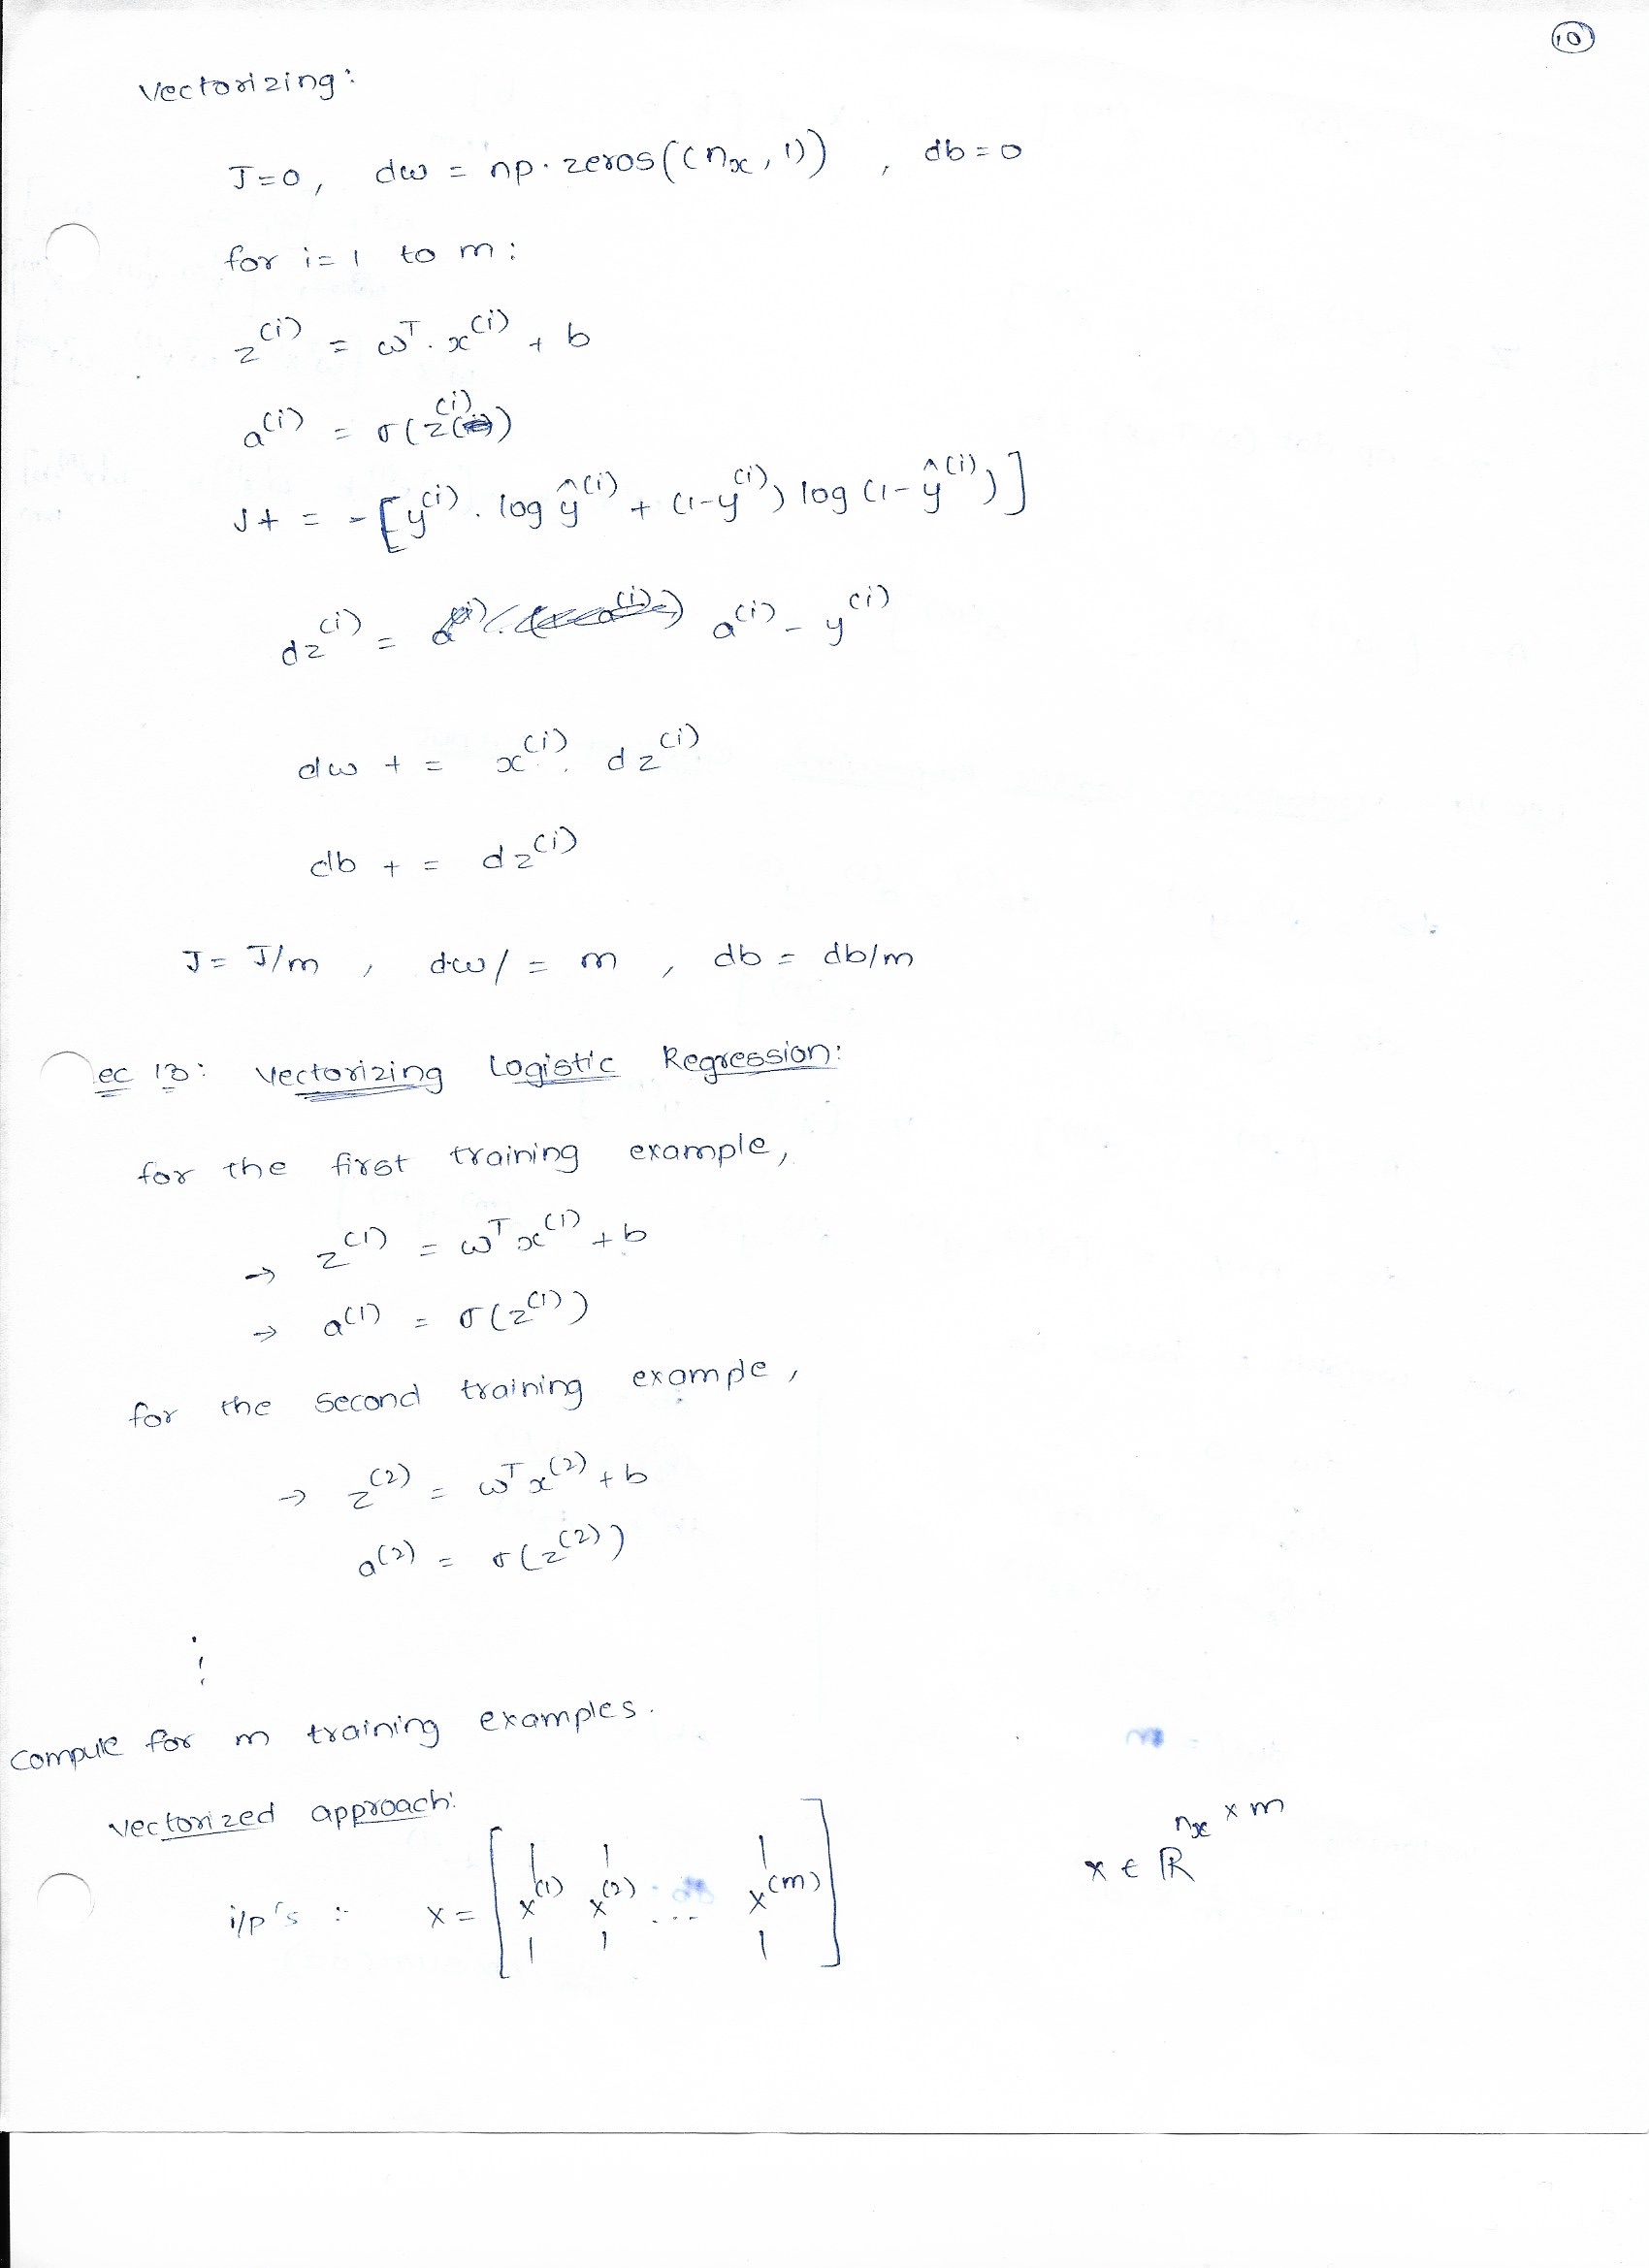 10
Vectorizing:
J=0, dw = np.zeros((nₓ, 1)), db=0
for i=1 to m:
z^(i) = ω^T . x^(i) + b
a^(i) = σ(z^(i))
J+ = -[y^(i) . log ŷ^(i) + (1-y^(i)) log (1-ŷ^(i))]
dz^(i) = a^(i) - y^(i)
dw += x^(i) . dz^(i)
db += dz^(i)
J = J/m , dw/ = m , db = db/m
ec 13: Vectorizing Logistic Regression:
for the first training example,
→ z^(1) = ω^T x^(1) + b
→ a^(1) = σ(z^(1))
for the second training exampe,
→ z^(2) = ω^T x^(2) + b
a^(2) = σ(z^(2))
⋮
Compute for m training examples.
Vectorized approach:
i/p's :- X = [x^(1) x^(2) ... x^(m)] X ∈ ℝ^(nₓ × m)